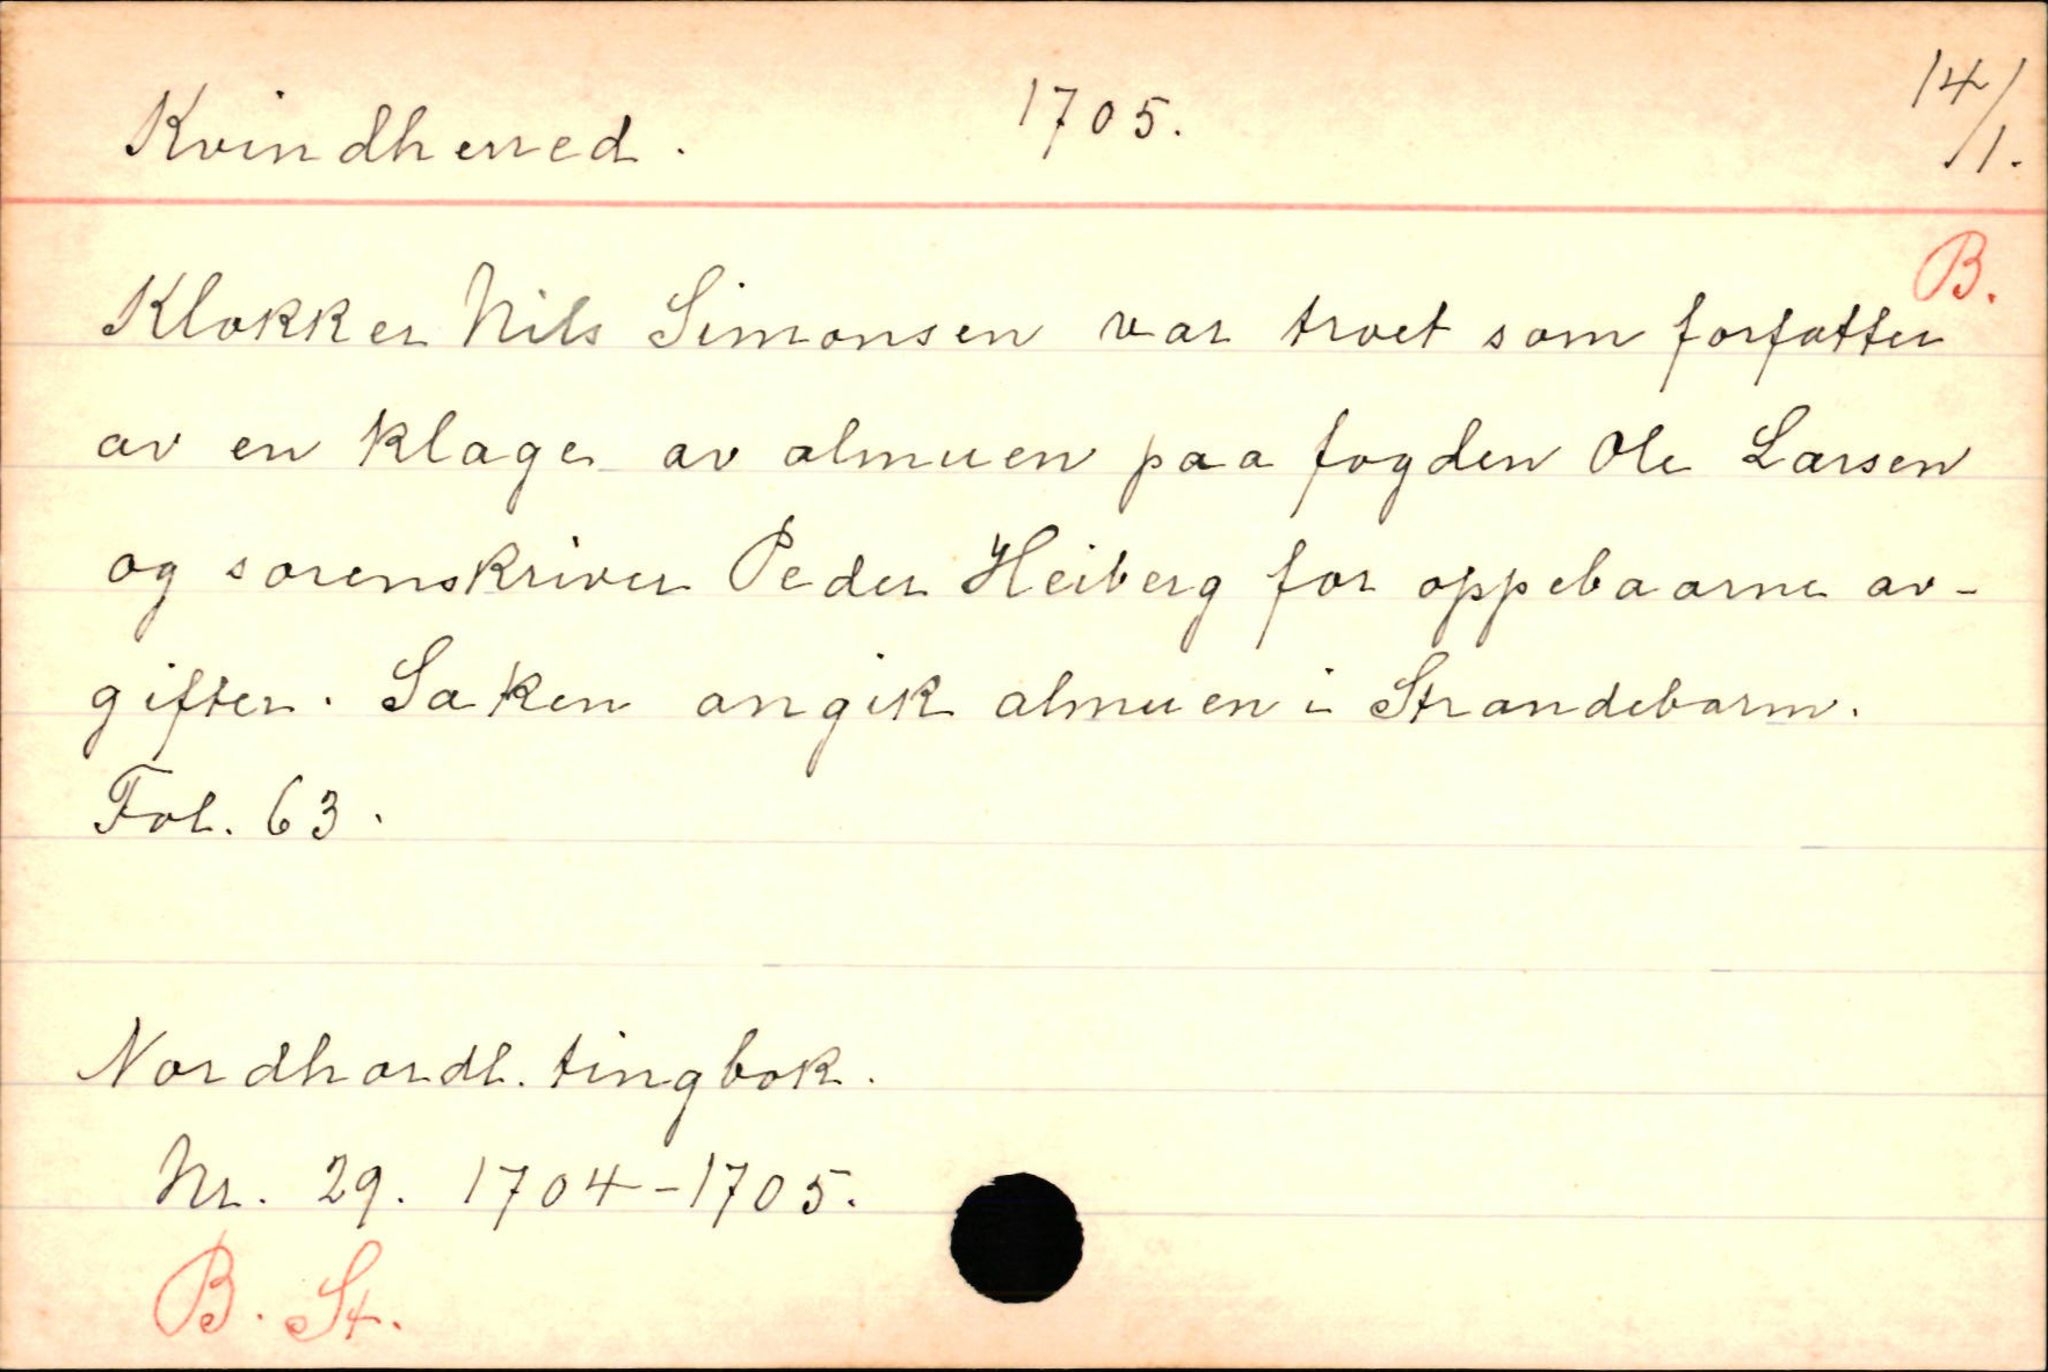 Kvindherred. 1705. 14/1.
B.
Klokker Nils Simonsen var troet som forfatter
av en klage av almuen paa fogden Ole Larsen
og sorenskriver Peder Heiberg for oppebaarne av-
gifter. Saken angik almuen i Strandebarm.
Fol. 63.
Nordhordl. tingbok.
Nr. 29. 1704-1705.
B. St.